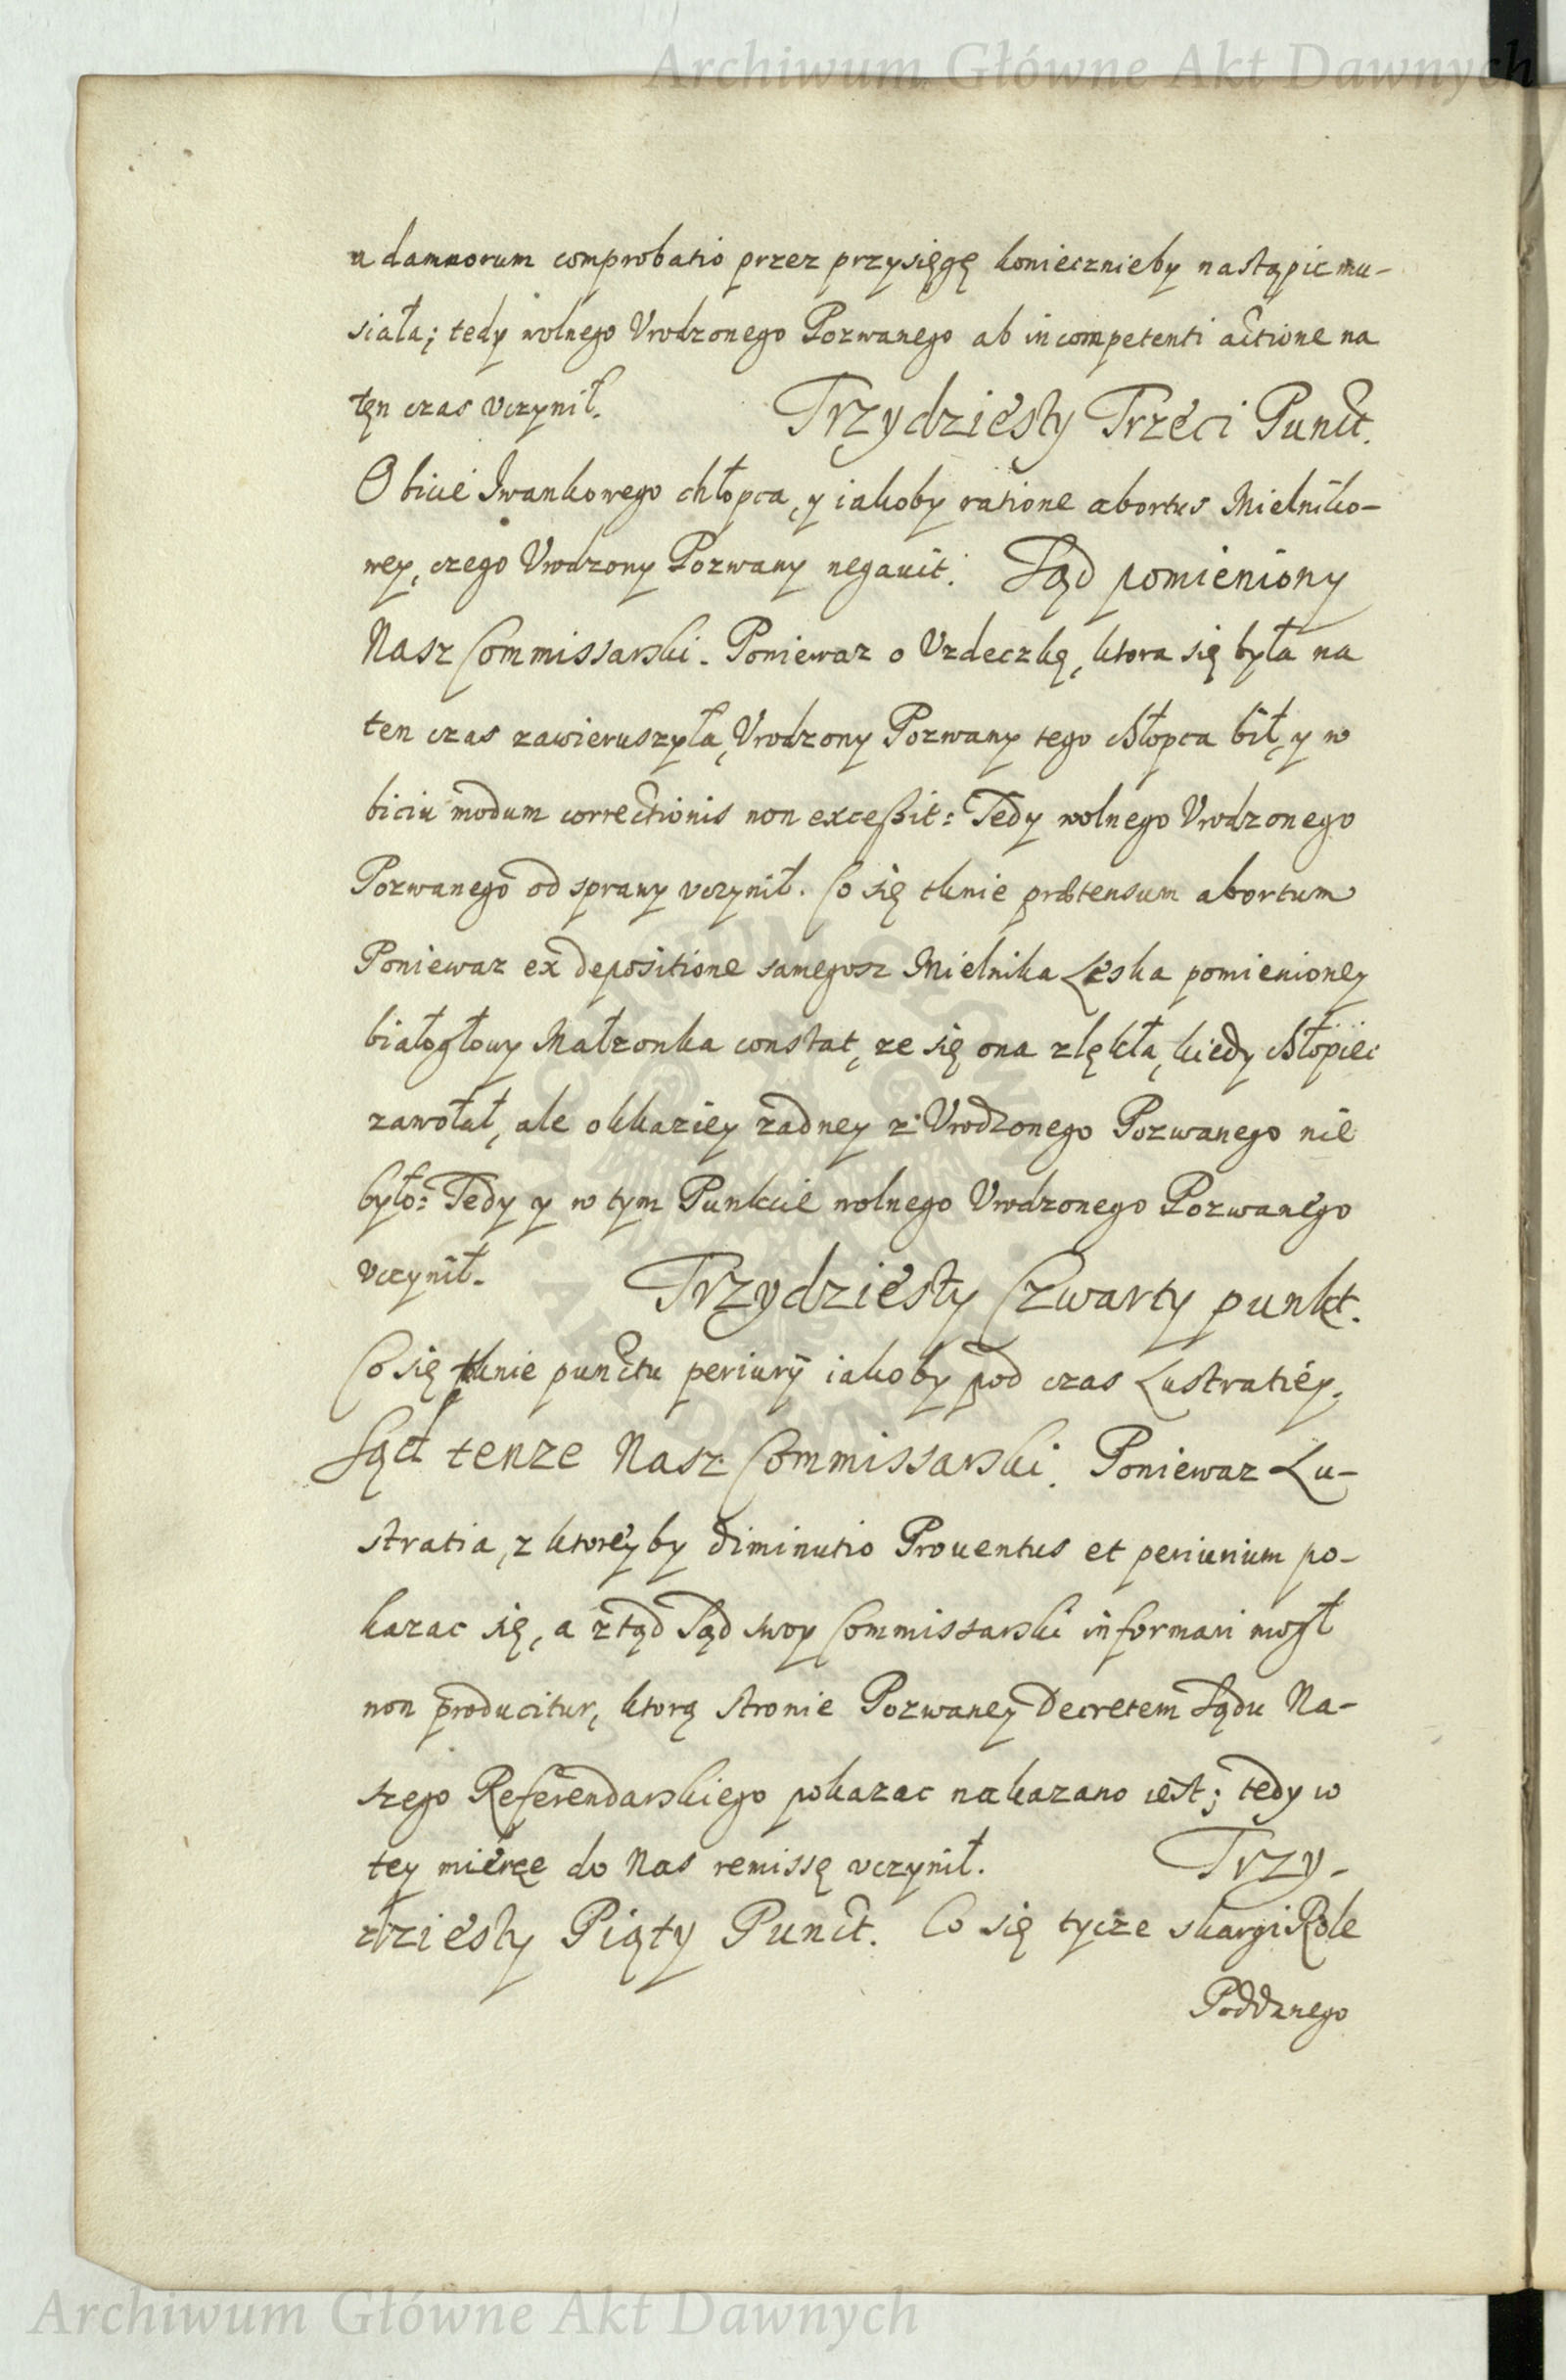 Archiwum Główne Akt Dawnych
a damnorum comprobatio przez przysięgę koniecznieby nastąpic mu-
siała; tedy wolnego Vrodzonego Pozwanego ab incompetenti actione na
tęn czas vczynił.   Trzydziesty Trzeci Punct.
O bicie Iwankowego chłopca, y iakoby ratione abortus Mielniko-
wey, czego Vrodzony Pozwany negauit. Sąd pomieniony
Nasz Commissarski. Poniewaz o Vzdeczkę, ktora się była na
ten czas zawieruszyła, Vrodzony Pozwany tego chłopca bił, y w
biciu modum correctionis non exceßit: Tedy wolnego Vrodzonego
Pozwanego od sprawy vczynił. Co się tknie prætensum abortum
Poniewaz ex depositione samegosz Mielnika Leska pomienioney
białogłowy Małzonka constat, ze się ona zlękła, kiedy chłopiec
zawołał, ale okkaziey zadney z Vrodzonego Pozwanego nie
było: Tedy y w tym Punkcie wolnego Vrodzonego Pozwanego
vczynił.   Trzydziesty Czwarty punkt.
Co się tknie punctu periurij iakoby pod czas Lustratiey,
Sąd tenze Nasz Commissarski. Poniewaz Lu-
stratia, z ktoreyby diminutio Prouentus et periurium po-
kazac się, a ztąd Sąd swoy Commissarski informari mogł
non producitur, ktorą stronie Pozwaney Decretem Sądu Na-
szego Referendarskiego pokazac nakazano iest; tedy w
tey mierze do Nas remissę vczynił.   Trzy-
dziesty Piąty Punct. Co się tycze skargi Role
Poddanego
Archiwum Główne Akt Dawnych